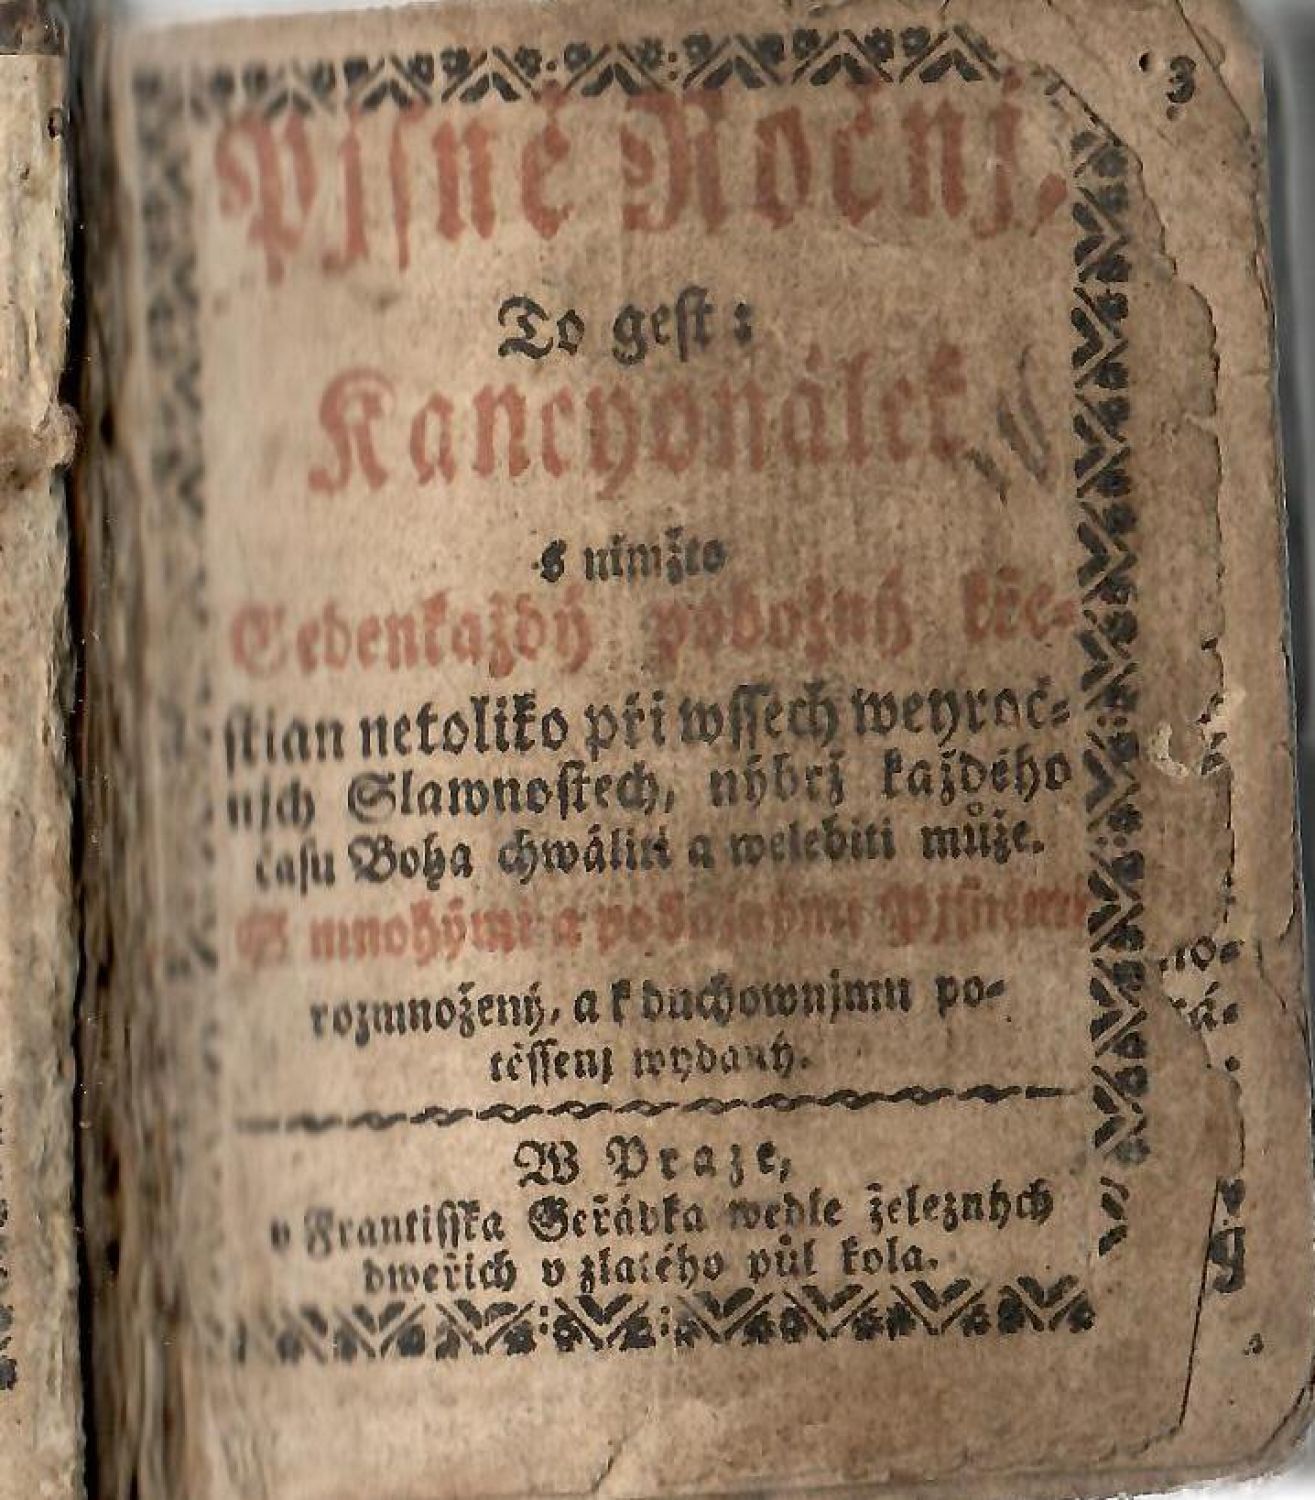 Pjſně Ročnj,
To geſt:
Kancyonálek
s nímžto
Gedenkaždý pobožný kře-
ſtian netoliko při wſſech weyroč-
njch Slawnoſtech, nýbrž každého
času Boha chwáliti a welebiti může.
S mnohými a pobožnými Pjſněmi
rozmnožený, a k duchownjmu po-
těſſenj wydaný.
W Praze,
v Frantiſſka Geřábka wedle železných
dweřich v zlatého půl kola.
3
no-
rá-